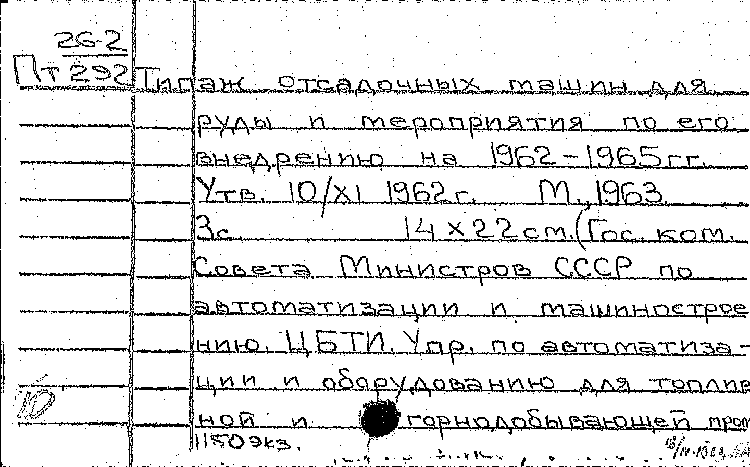 26-2
Пт 292 Типаж отсадочных машин для
руды и мероприятия по его
внедрению на 1962-1965гг.
Утв. 10/XI 1962г. М., 1963.
3с. 14 х 22 см. (Гос. ком.
Совета Министров СССР по
автоматизации и машинострое
нию. ЦБТИ. Упр. по автоматиза-
ции и оборудованию для топлив
ной и горнодобывающей пром
1150экз.